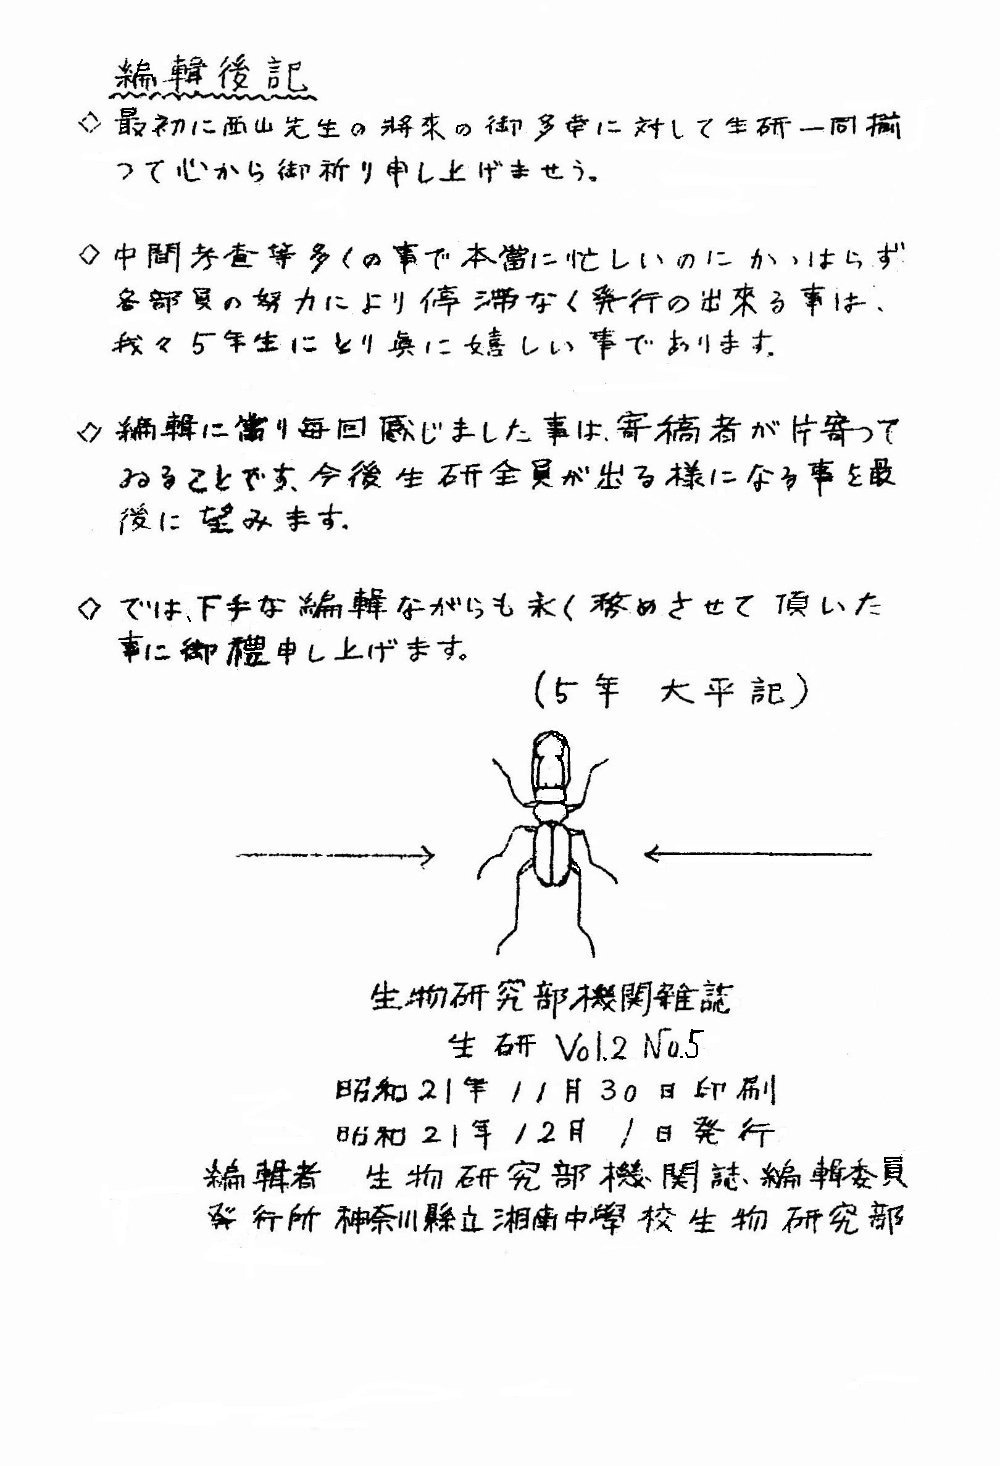 編輯後記
◇ 最初に西山先生の將來の御多幸に対して生研一同揃
つて心から御祈り申し上げませう。
◇ 中間考査等多くの事で本當に忙しいのにかゝはらず
各部員の努力により停滞なく発行の出來る事は、
我々5年生にとり眞に嬉しい事であります。
◇ 編輯に當り毎回感じました事は、寄稿者が片寄つて
ゐることです、今後生研全員が出る様になる事を最
後に望みます。
◇ では、下手な編輯ながらも永く務めさせて頂いた
事に御禮申し上げます。
(5年 大平記)
生物研究部機関雜誌
生研 Vol.2 No.5
昭和21年11月30日印刷
昭和21年12月1日発行
編輯者 生物研究部機関誌編輯委員
発行所 神奈川縣立湘南中學校生物研究部